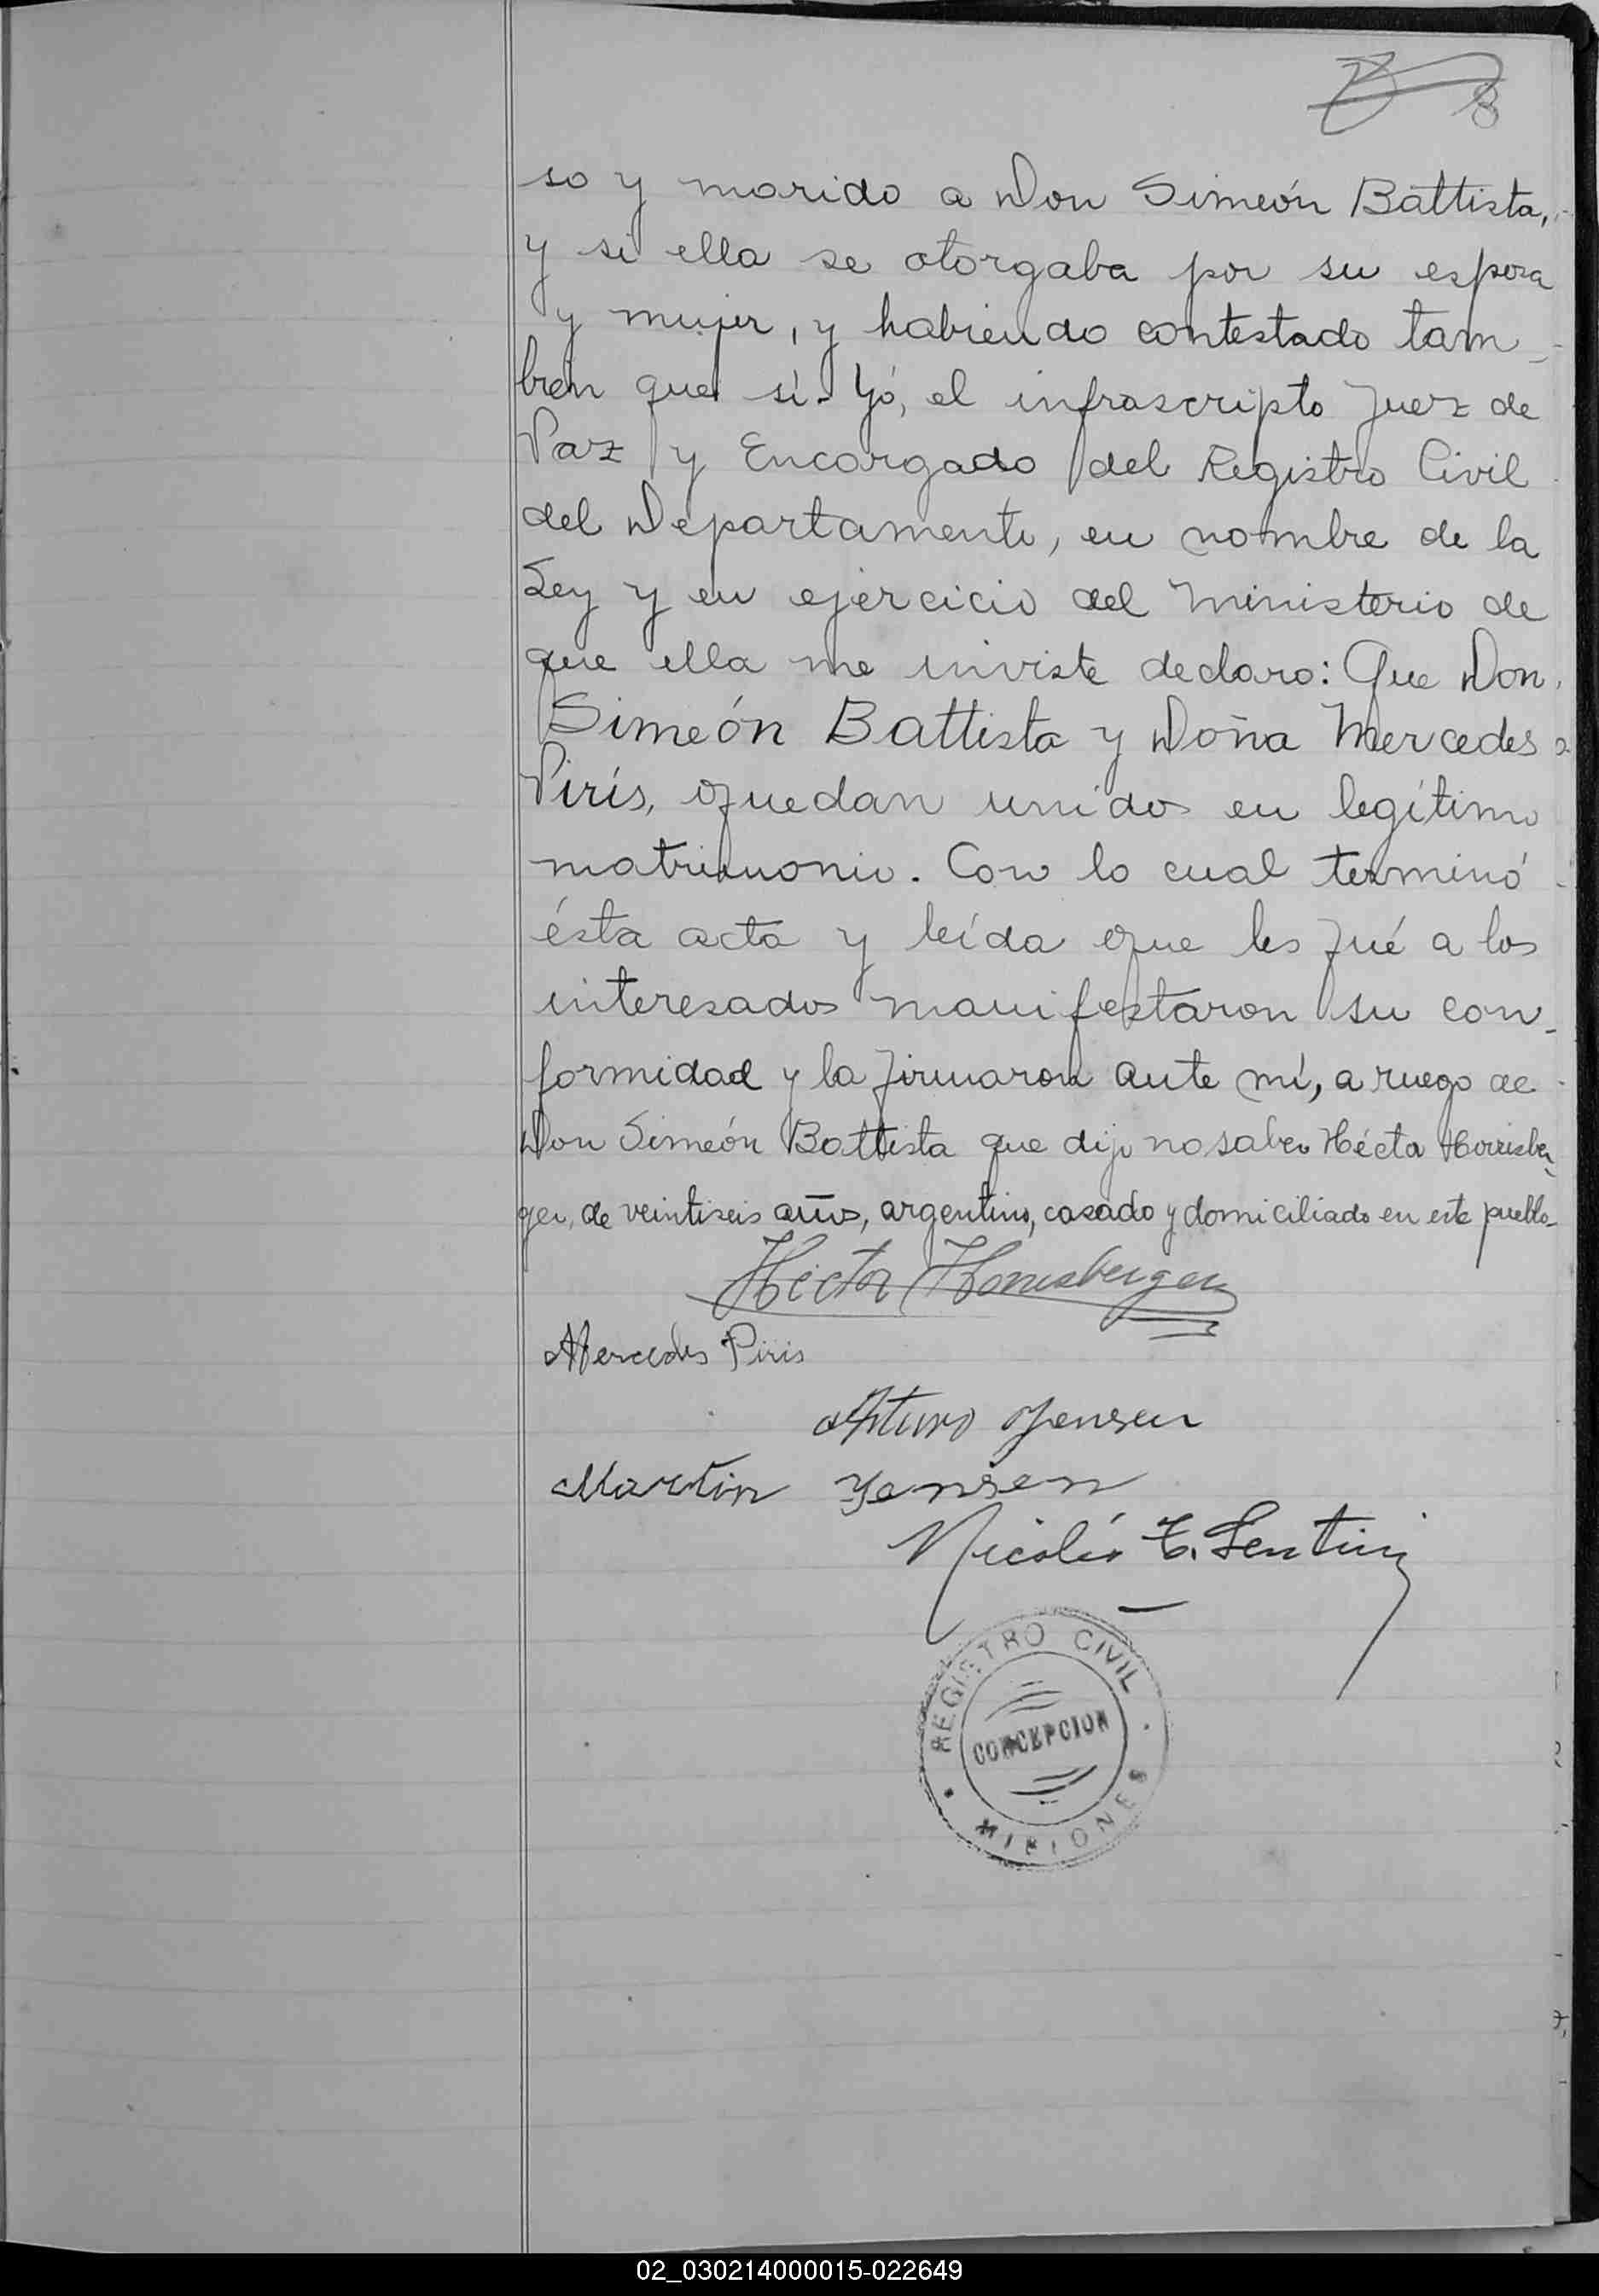 8
so y marido a Don Simeón Battista,
y si ella se otorgaba por su esposa
y mujer, y habiendo contestado tam-
bien que sí. Yó, el infrascripto Juez de
Paz y Encargado del Registro Civil
del Departamento, en nombre de la
Ley y en ejercicio del Ministerio de
que ella me inviste declaro: Que Don
Simeón Battista y Doña Mercedes
Pirís, quedan unidos en legítimo
matrimonio. Con lo cual terminó
ésta acta y leída que les fué a los
interesados manifestaron su con-
formidad y la firmaron ante mí, a ruego de
Don Simeón Battista que dijo no saber Héctor Horrisber-
ger, de veintiseis años, argentino, casado y domiciliado en este pueblo-
Héctor Horrisberger
Mercedes Piris
Arturo Yensen
Martin Yensen
Nicolás E. Lentini
REGISTRO CIVIL
CONCEPCION
MISIONES
02_030214000015-022649